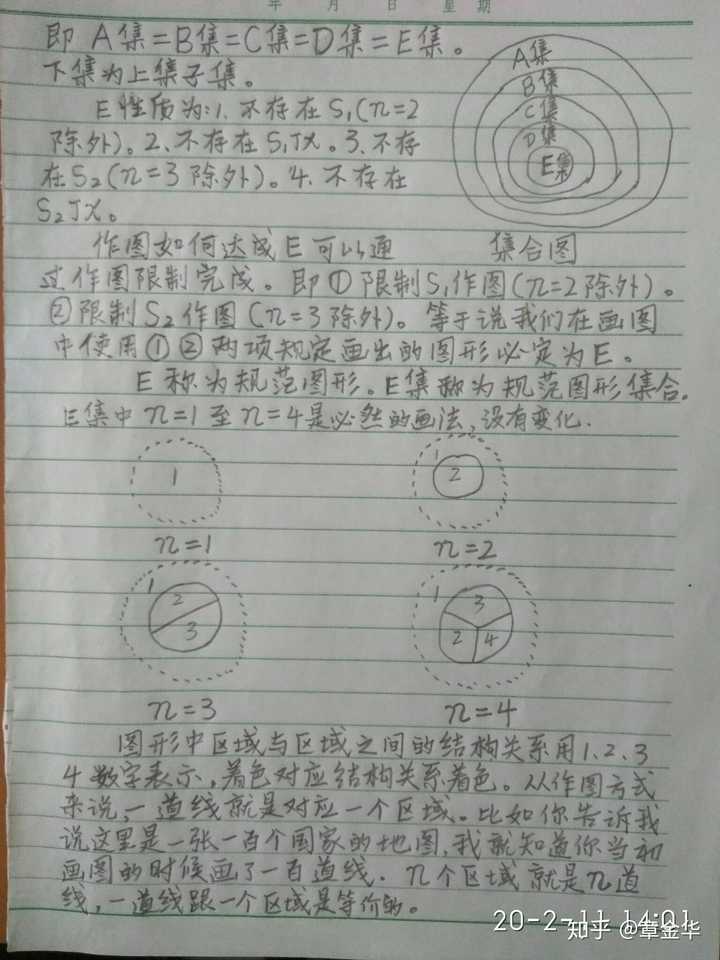 年 月 日 星期
即 A集=B集=C集=D集=E集。
下集为上集子集。
E性质为:1、不存在S₁(n=2
除外)。2、不存在S₁Jx。3、不存
在S₂(n=3除外)。4、不存在
S₂Jx。
A集
B集
C集
D集
E集
集合图
作图如何达成E可以通
过作图限制完成。即①限制S₁作图(n=2除外)。
②限制S₂作图(n=3除外)。等于说我们在画图
中使用①②两项规定画出的图形必定为E。
E称为规范图形。E集称为规范图形集合。
E集中n=1至n=4是必然的画法,没有变化.
1
1 2
n=1
n=2
1 2 3
1 3 2 4
n=3
n=4
图形中区域与区域之间的结构关系用1.2.3
4数字表示,着色对应结构关系着色。从作图方式
来说,一道线就是对应一个区域。比如你告诉我
说这里是一张一百个国家的地图,我就知道你当初
画图的时候画了一百道线.n个区域就是n道
线,一道线跟一个区域是等价的。
20-2-11 14:01
知乎 @章金华